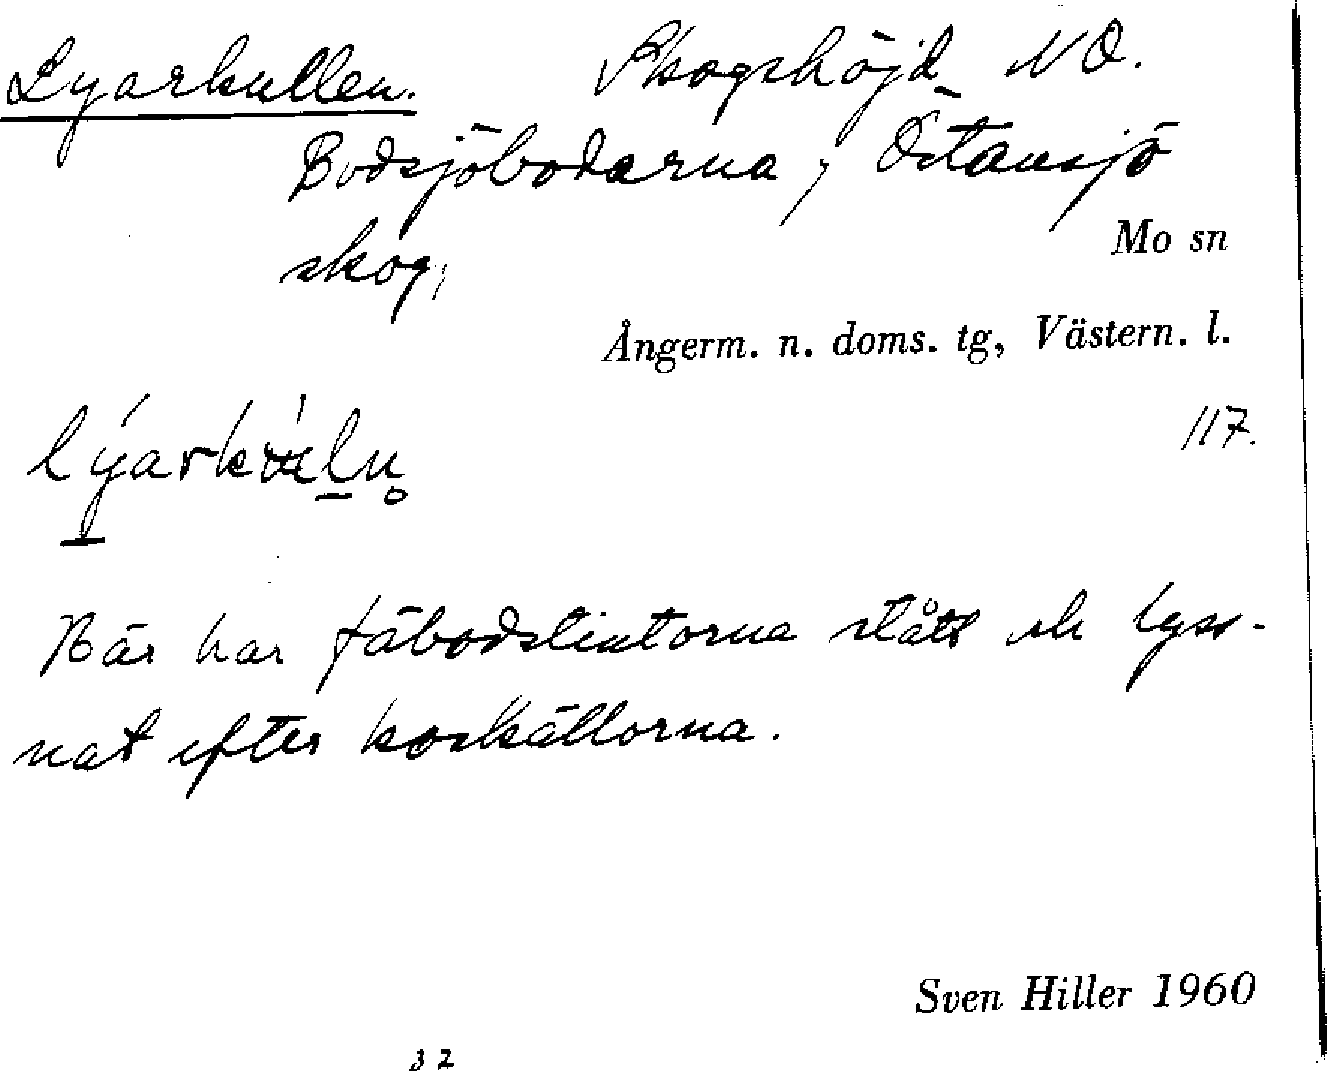 Lyarkullen. Skogshöjd NO.
Bodsjöbodarna, Östansjö
skog,
Mo sn
Ångerm. n. doms. tg, Västern. l.
117.
Här har fäbodstintorna stått och lyss-
nat efter koskällorna.
Sven Hiller 1960
32